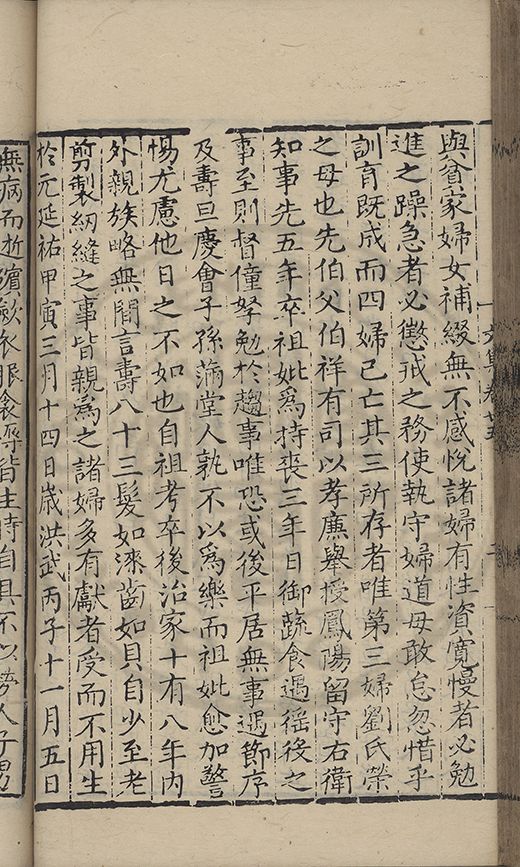 與貧家婦女補綴無不感悅諸婦有性資寬慢者必勉
進之躁急者必懲戒之務使執守婦道毋敢怠忽惜乎
訓育既成而四婦已亡其三所存者唯第三婦劉氏榮
之母也先伯父伯祥有司以孝廉舉授鳳陽留守右衛
知事先五年卒祖妣為持喪三年日御蔬食遇徭役之
事至則督僮孥勉於趨事唯恐或後平居無事遇節序
及壽旦慶會子孫滿堂人孰不以為樂而祖妣愈加警
惕尤慮他日之不如也自祖考卒後治家十有八年內
外親族略無閒言壽八十三髮如漆齒如貝自少至老
剪製紉縫之事皆親為之諸婦多有獻者受而不用生
於元延祐甲寅三月十四日歲洪武丙子十一月五日
無病而逝殯歛衣服衾褥皆生時自具不以勞人子男